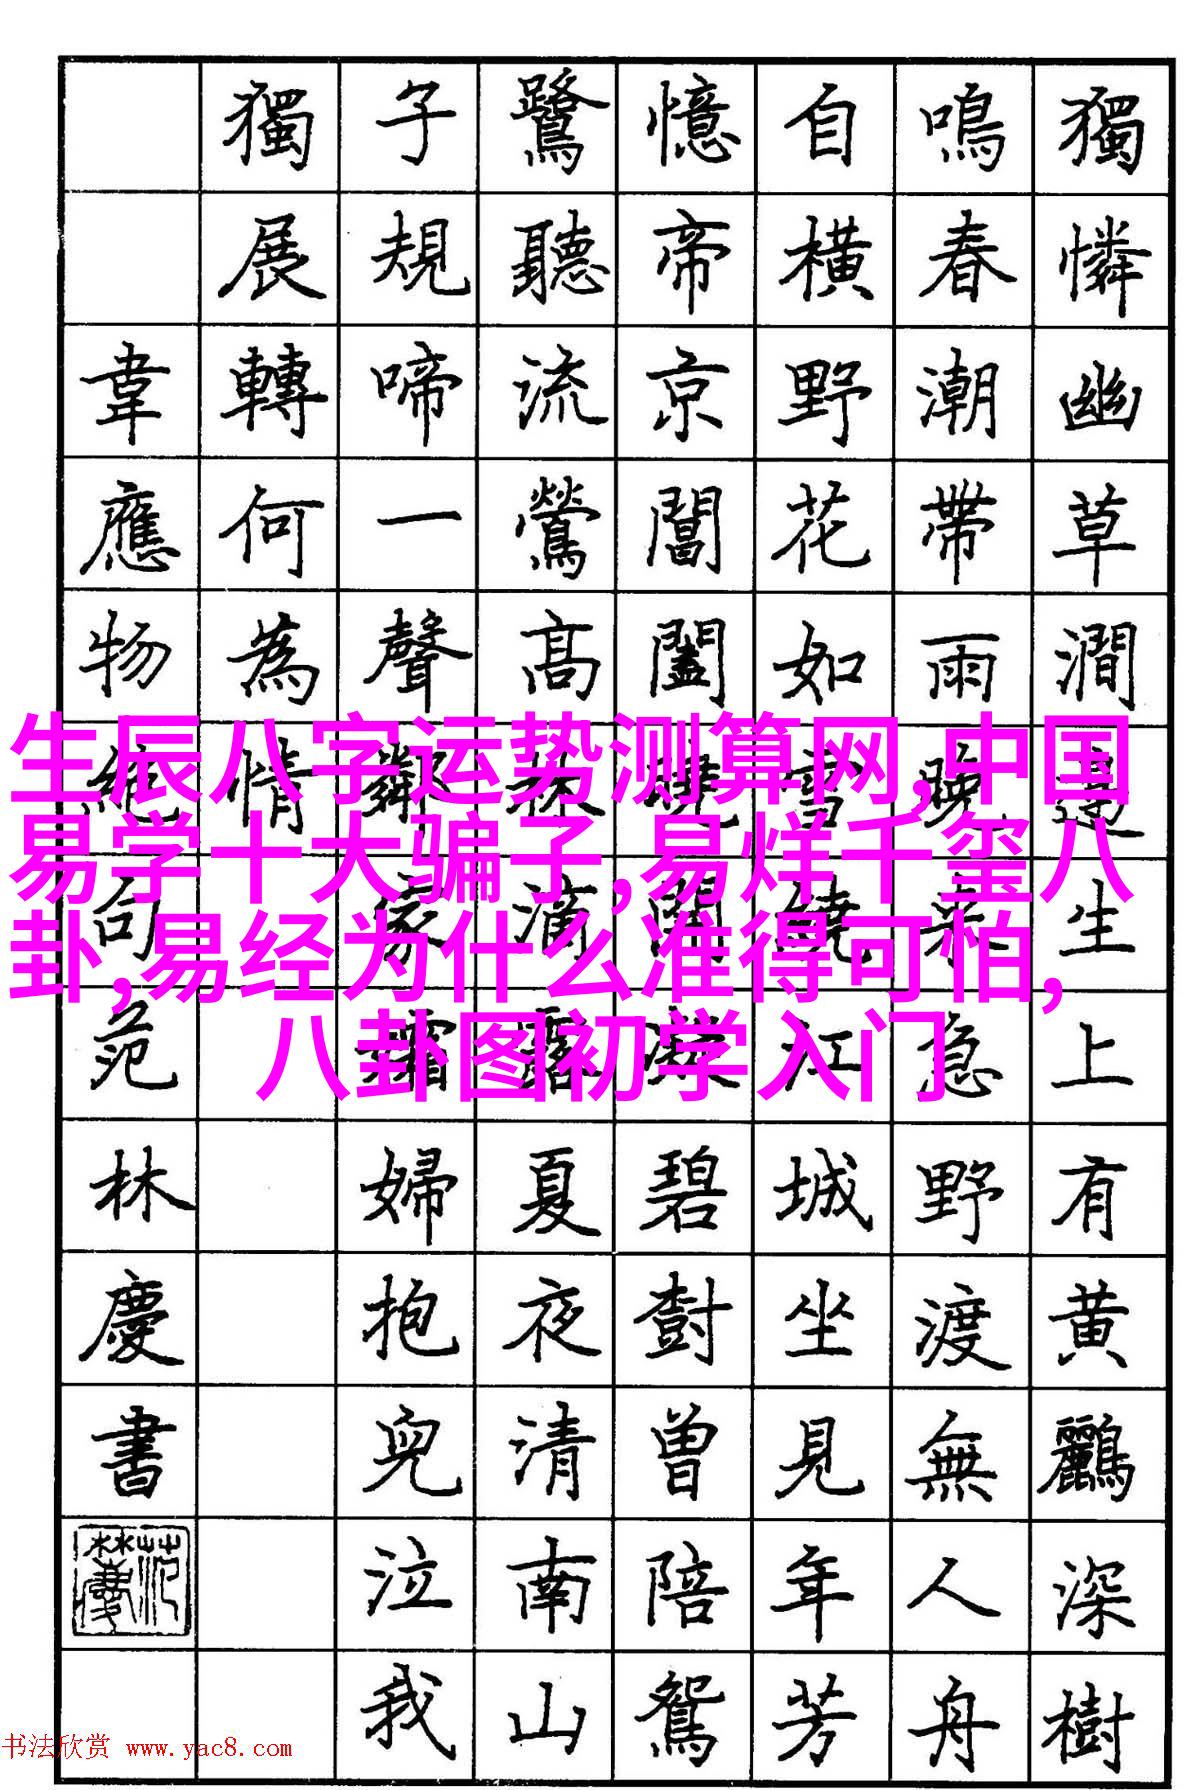 獨憐幽草澗邊生上有黄鸝深樹
鳴春潮帶雨晚來急野渡無人舟
自橫野花如雪繞江城坐見年芳
憶帝京閶闔曉開凝碧樹曾陪鴛
鷺聽流鶯高林滴露夏夜清南山
子規啼一聲鄰家孀婦抱兒泣我
獨展轉何為情
韋應物絕句范林慶書
生辰八字运势测算网,中国
易学十大骗子,易烊千玺八
卦,易经为什么准得可怕,
八卦图初学入门
书法欣赏 www.yac8.com